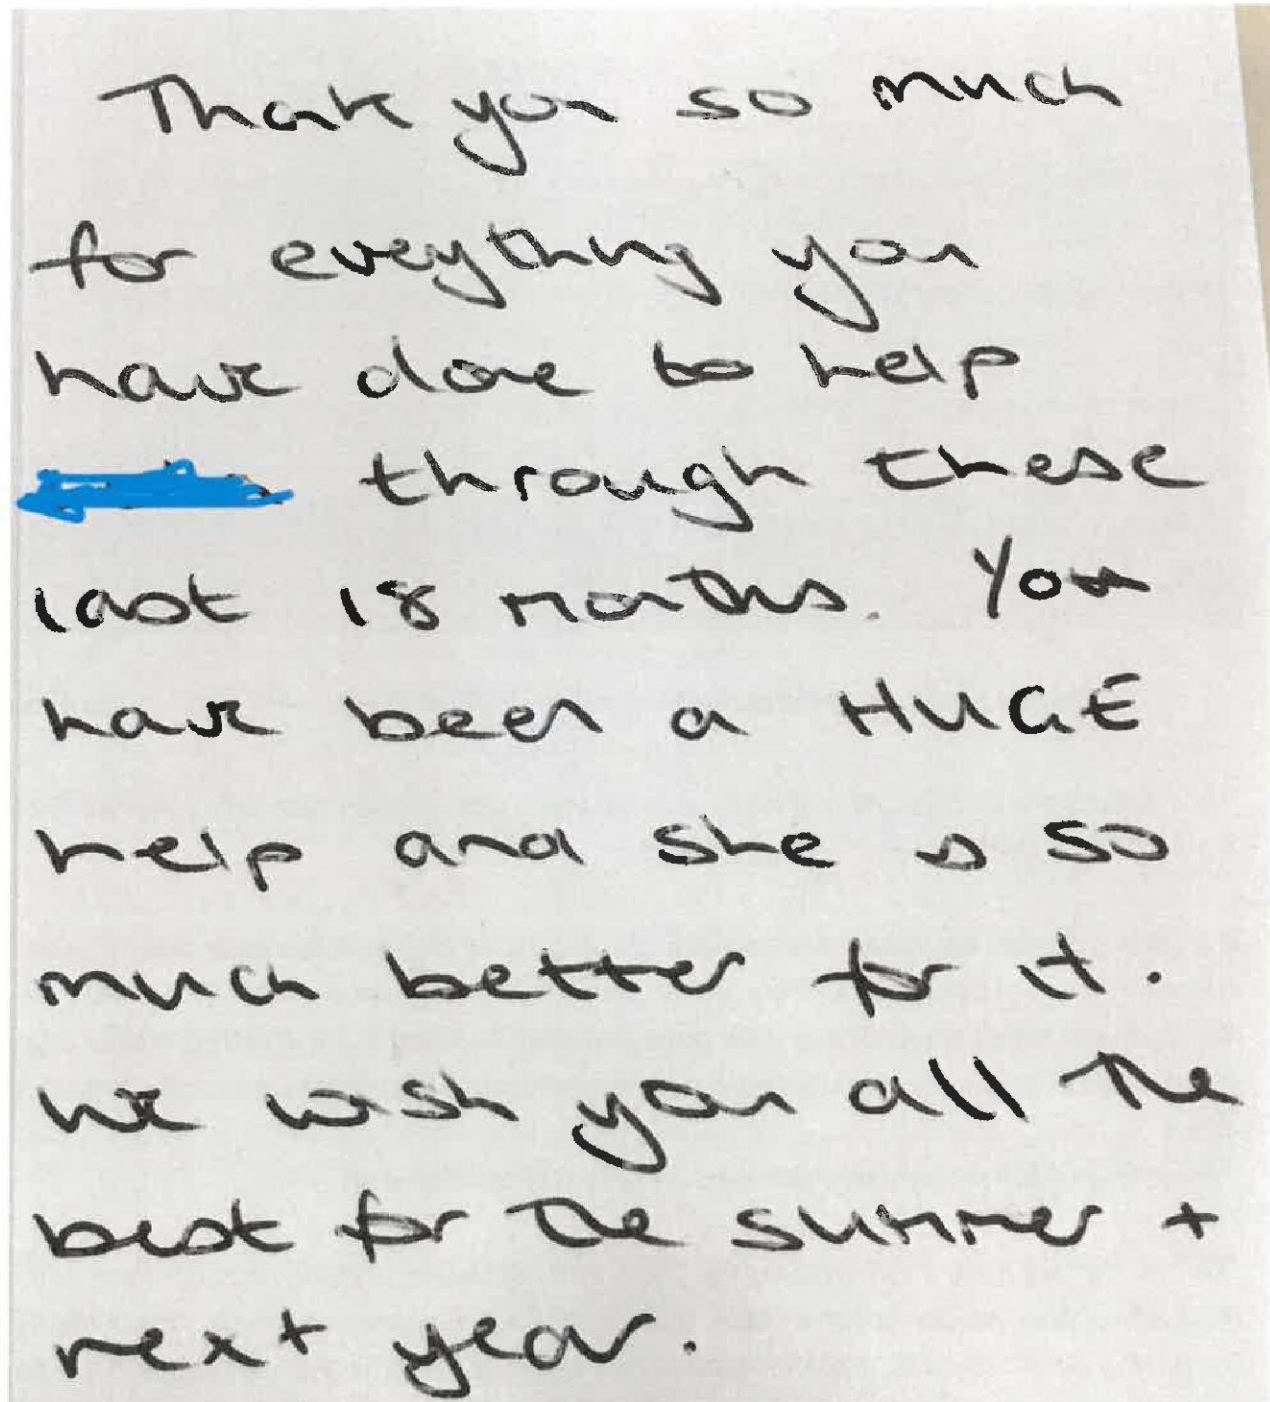 Thank you so much
for everything you
have done to help
through these
last 18 months. You
have been a HUGE
help and she is so
much better for it.
We wish you all the
best for the summer +
next year.